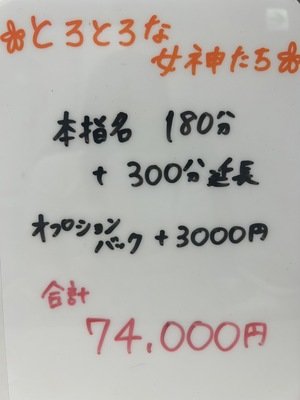 とろとろな
女神たち
本指名 180分
+ 300分延長
オプション
バック +3000円
合計
74,000円